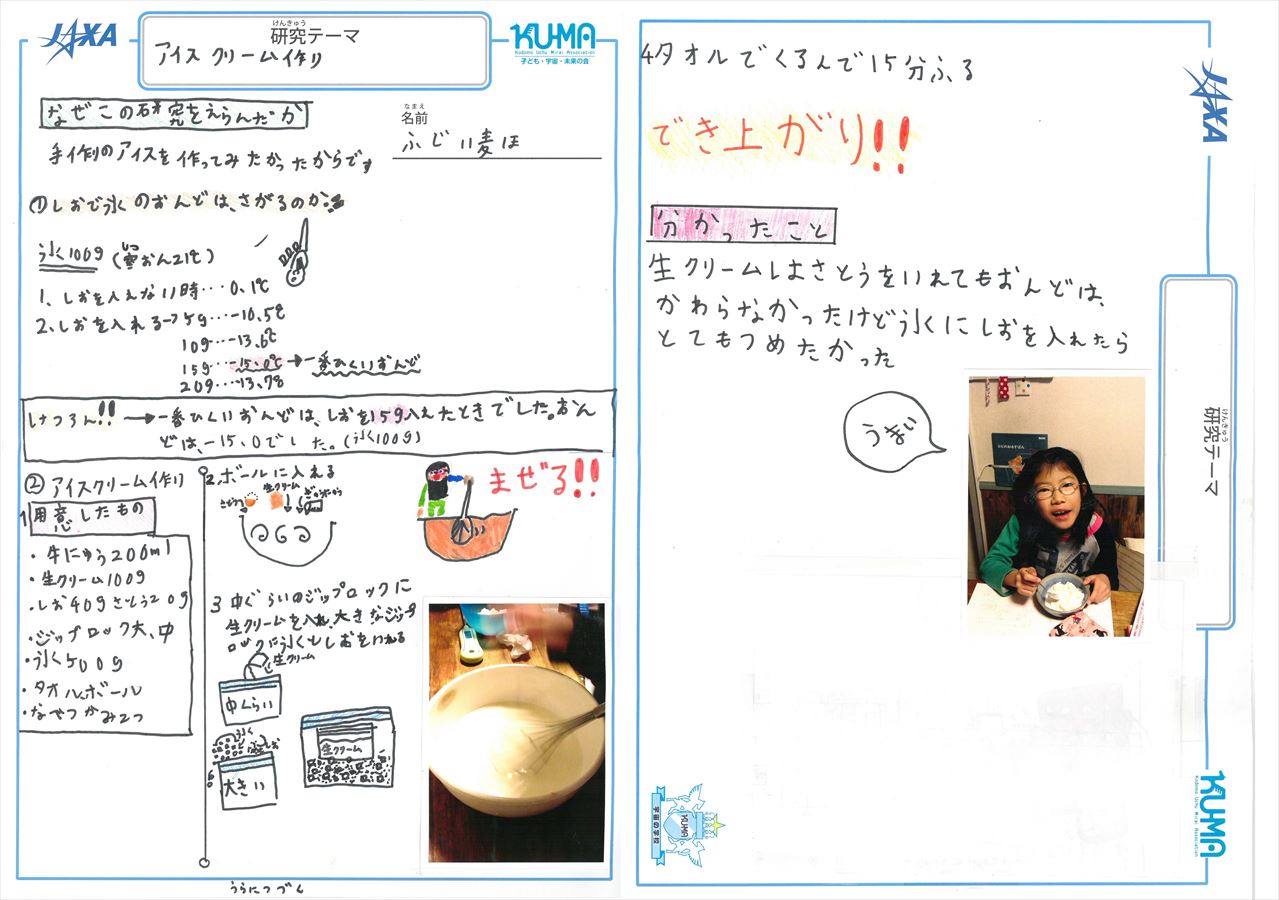 JAXA
けんきゅう
研究テーマ
アイスクリーム作り
KUMA
Kodomo Uchu Mirai Association
子ども・宇宙・未来の会
なぜこの研究をえらんだか
なまえ
名前
ふじい麦ほ
手作りのアイスを作ってみたかったからです
①しおで氷のおんどは、さがるのか?
氷100g (室おん21℃)
しつ
1、しおを入えない時…0.1℃
2、しおを入れる→5g…-10.5℃
10g…-13.6℃
15g…-15.0℃→一番ひくいおんど
20g…-13.7℃
けつろん!!→一番ひくいおんどは、しおを15g入えたときでした。おん
どは、-15.0でした。(氷100g)
②アイスクリーム作り
1用意したもの
・牛にゅう200ml
・生クリーム100g
・しお40gさとう20g
・ジップロック大、中
・氷500g
・タオル、ボール
・なべつかみ2つ
2.ボールに入える
さとう
生クリーム
ぎゅうにゅう
まぜる!!
3 中ぐらいのジップロックに
生クリームを入れ、大きなジップ
ロックに氷としおをいれる
生クリーム
中くらい
氷
しお
大きい
生クリーム
うらにつづく
4タオルでくるんで15分ふる
でき上がり!!
分かったこと
生クリームはさとうをいれてもおんどは、
かわらなかったけど氷にしおを入れたら
とてもつめたかった
うまい
JAXA
けんきゅう
研究テーマ
KUMA
宇宙の学校
KUMA
Kodomo Uchu Mirai Association